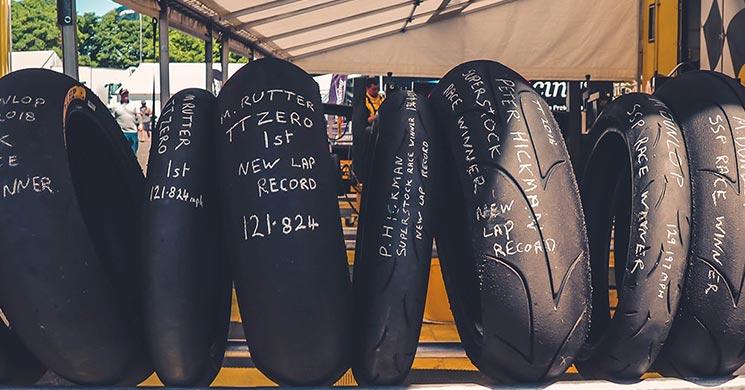 NLOP
2018
K
CE
INNER
M RUTTER
TT ZERO
1st
121.824 mph
M. RUTTER
TT ZERO
1st
NEW LAP
RECORD
121.824
P. HICKMAN
SUPERSTOCK RACE WINNER
NEW LAP RECORD
PETER HICKMAN
TT 2018
SUPERSTOCK
RACE WINNER
NEW
LAP
RECORD
DUNLOP
SSP RACE WINNER
129.197 MPH
SSP RACE WINNER